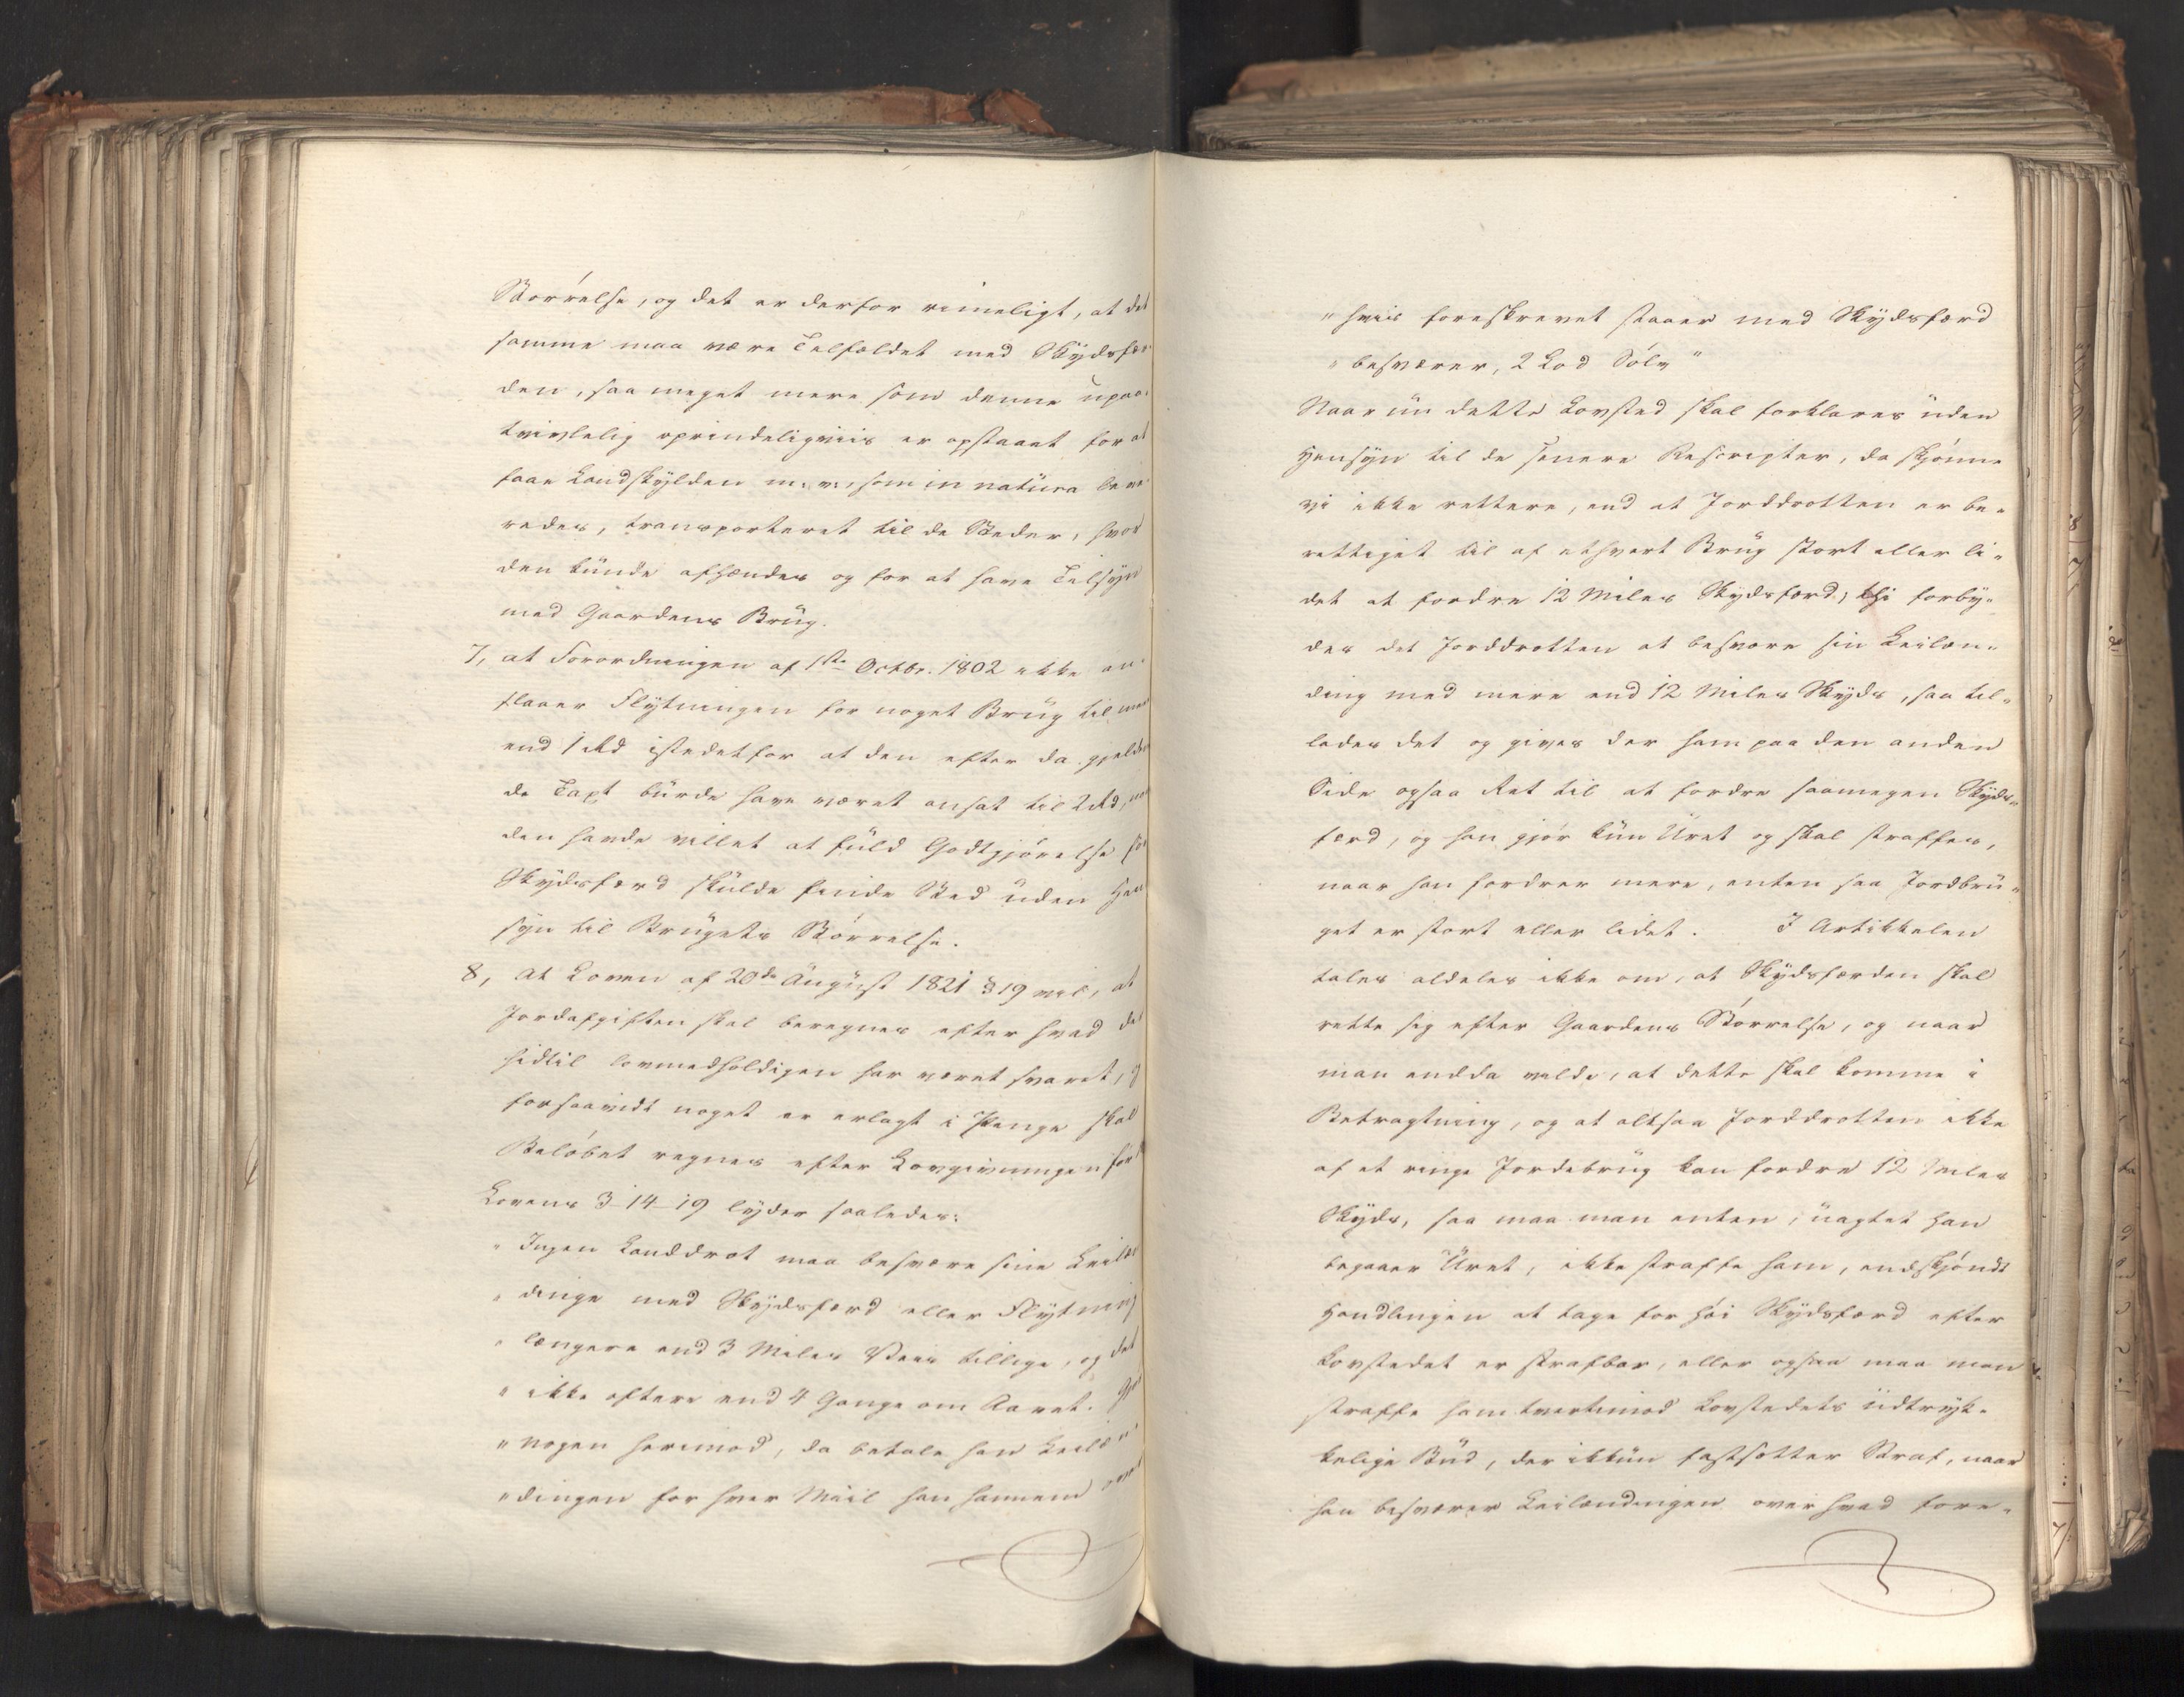 Størrelse, og det er derfor rimeligt, at det
samme maa være Tilfældet med Skydsfær
den, saa meget mere som denne upaa-
tvivlelig oprindeligviis er opstaaet for at
faae Landskylden m: v:, som in natura leve
redes, transporteret til de Steder, hvor
den kunde afhændes og for at have Tilsyn
med Gaardens Brug.
7, at Forordningen af 1ste Octbr. 1802 ikke an-
slaaer Flytningen for noget Brug til mere
end 1 Rd istedetfor at den efter da gjelden
de Taxt burde have været ansat til 2 Rd, naar
den havde villet at fuld Godtgjørelse for
Skydsfærd skulde finde Sted uden Hen
syn til Brugets Størrelse.
8, at Loven af 20de August 1821 § 19 vil, at
Jordafgiften skal beregnes efter hvad der
hidtil lovmedholdigen har været svaret, og
forsaavidt noget er erlagt i Penge skal
Beløbet regnes efter Lovgivningen for
Lovens 3-14-19 lyder saaledes:
" Ingen Landdrot maa besvære sine Leilæn
" dinge med Skydsfærd eller Flytning
" længere end 3 Miles Veie tillige, og det
" ikke oftere end 4 Gange om Aaret. Gjør
" nogen herimod, da betale han Leilæn
" dingen for hver Miil han hannem over
" hviis foreskrevet staaer med Skydsfærd
" besværer, 2 Lod Sølv "
Naar nu dette Lovsted skal forklares uden
Hensyn til de senere Rescripter, da skjønne
vi ikke rettere, end at Jorddrotten er be-
rettiget til af ethvert Brug stort eller li-
det at fordre 12 Miles Skydsfærd; thi forby-
des det Jorddrotten at besvære sin Leilæn-
ding med mere end 12 Miles Skyds, saa til-
lades det og gives der ham paa den anden
Side ogsaa Ret til at fordre saamegen Skyds-
færd, og han gjør kun Uret og skal straffes,
naar han fordrer mere, enten saa Jordbru-
get er stort eller lidet. I Artikkelen
tales aldeles ikke om, at Skydsfærden skal
rette sig efter Gaardens Størrelse, og naar
man endda vilde, at dette skal komme i
Betragtning, og at altsaa Jorddrotten ikke
af et ringe Jordebrug kan fordre 12 Miles
Skyds, saa maa man enten, uagtet han
begaaer Uret, ikke straffe ham, endskjøndt
Handlingen at tage for høi Skydsfærd efter
Lovstedet er strafbar, eller ogsaa maa man
straffe ham tvertimod Lovstedets udtryk-
kelige Bud, der ikkun fastsætter Straf, naar
han besværer Leilændingen over hvad fore-